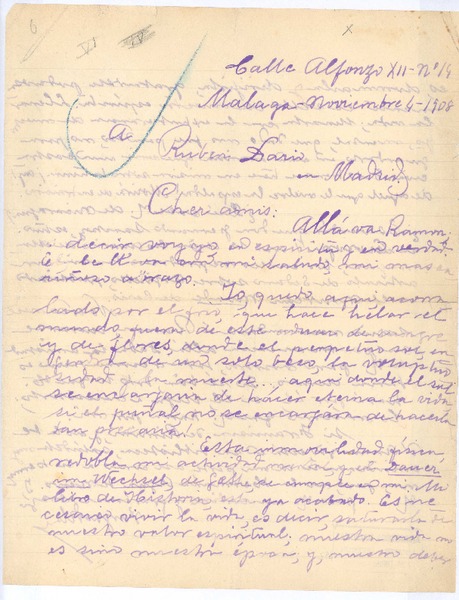 6
VI IV
X
Calle Alfonzo XII-Nº 14
Malaga-Noviembre 4-1908
A Ruben Dario
en Madrid
Cher amis:
Allá va Ramon:
decir voy yo en espiritu y en verdad.
El le lleva con mi saludo, mi mas ca
riñoso abrazo.
Yo quedo aqui acora
lado por el frio, que hace helar el
mundo fuera de este oden de sangre
y de flores, donde el perpetuo sol, en
gendra de un solo beso, la voluptuo
sidad y la muerte... aqui donde el sol
se encargaria de hacer eterna la vida
si el puñal no se encargara de hacerla
tan precaria!
Esta inmovilidad fisica,
redobla mi actividad moral y el Dauer
im Wechsel, de Gœthe se cumple en mi. Mi
libro de Historia está ya acabado. Es ne
cesario vivir la vida, es decir, saturarla de
nuestro valor espiritual; nuestra vida no
es sino nuestra época; y, nuestro deber